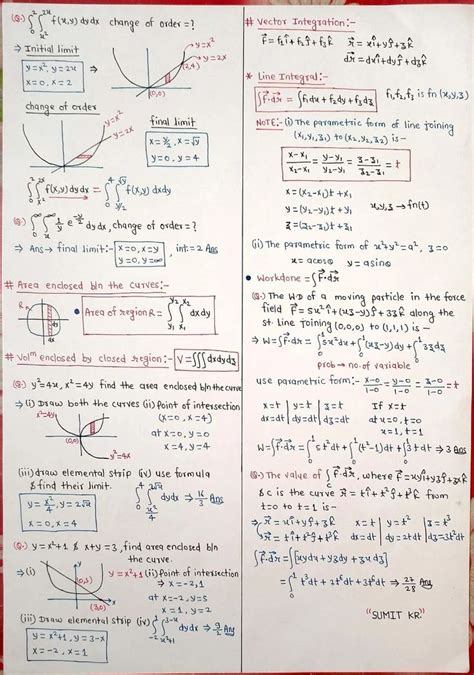 (Q.) ∫₀² ∫_{x²}^{2x} f(x,y) dydx change of order = ?
⇒ Initial limit
y=x², y=2x
x=0, x=2
y=x²
y=2x
(2,4)
(0,0)
change of order
y=x²
y=2x
final limit
x=y/2, x=√y
y=0, y=4
∫₀² ∫_{x²}^{2x} f(x,y) dydx = ∫₀⁴ ∫_{y/2}^{√y} f(x,y) dxdy
(Q.) ∫₀^∞ ∫_x^∞ (1/y) e^{-y/2} dydx, change of order = ?
⇒ Ans → final limit:- x=0, x=y
y=0, y=∞ , int. = 2 Ans
# Area enclosed b/n the curves:-
R
dy
dx
• Area of region R = ∫_{y₁}^{y₂} ∫_{x₁}^{x₂} dxdy
# Volᵐ enclosed by closed region:- V=∫∫∫dxdydz
(Q.) y²=4x, x²=4y find the area enclosed b/n the curve
⇒ (i) Draw both the curves (ii) Point of intersection
x²=4y
(0,0)
y²=4x
(x=0, x=4)
at x=0, y=0
x=4, y=4
(iii) draw elemental strip (iv) use formula
& find their limit.
y=x²/4, y=2√x
x=0, x=4
∫₀⁴ ∫_{x²/4}^{2√x} dydx ⇒ 16/3 Ans
(Q.) y=x²+1 & x+y=3, find area enclosed b/n
the curve.
⇒(i)
y=x²+1 (ii) Point of intersection
(0,3)
(3,0)
⇒ x=-2,1
at x=-2, y=5
x=1, y=2
(iii) Draw elemental strip (iv) ∫_{-2}^{1} ∫_{x²+1}^{3-x} dydx ⇒ 9/2 Ans
y=x²+1, y=3-x
x=-2, x=1
# Vector Integration:-
F⃗=f₁î+f₂ĵ+f₃k̂ r⃗=xî+yĵ+zk̂
dr⃗=dxî+dyĵ+dzk̂
* Line Integral:-
∫F⃗.dr⃗ = ∫f₁dx+f₂dy+f₃dz f₁,f₂,f₃ is fn (x,y,z)
NOTE:- (i) The parametric form of line joining
(x₁,y₁,z₁) to (x₂,y₂,z₂) is -
(x-x₁)/(x₂-x₁) = (y-y₁)/(y₂-y₁) = (z-z₁)/(z₂-z₁) = t
x=(x₂-x₁)t+x₁
y=(y₂-y₁)t+y₁ x,y,z → fn(t)
z=(z₂-z₁)t+z₁
(ii) The parametric form of x²+y²=a², z=0
x=acosθ y=asinθ
• Workdone = ∫F⃗.dr⃗
(Q.) The WD of a moving particle in the force
field F⃗=5x²î+(xz-y)ĵ+3zk̂ along the
st. line joining (0,0,0) to (1,1,1) is -
⇒ W=∫F⃗.dr⃗ = ∫₀¹5x²dx+∫₀¹(xz-y)dy+∫₀¹3zdz
prob → no. of variable
use parametric form:- (x-0)/(1-0) = (y-0)/(1-0) = (z-0)/(1-0) = t
x=t y=t z=t If x=t
dx=dt dy=dt dz=dt at x=0, t=0
x=1, t=1
W=∫F⃗.dr⃗=∫₀¹5t²dt+∫₀¹(t²-t)dt+∫₀¹3t dt ⇒ 3 Ans
(Q.) The value of ∫_C F⃗.dr⃗, where F⃗=xyî+yzĵ+zxk̂
& C is the curve r⃗=tî+t²ĵ+t³k̂ from
t=0 to t=1 is -
⇒ r⃗=xî+yĵ+zk̂ x=t y=t² z=t³
r⃗=tî+t²ĵ+t³k̂ dx=dt dy=2tdt dz=3t²dt
∫F⃗.dr⃗=∫[xydx+yzdy+zxdz]
=∫₀¹t³dt+2t⁶dt+3t⁶dt ⇒ 27/28 Ans
"SUMIT KR."